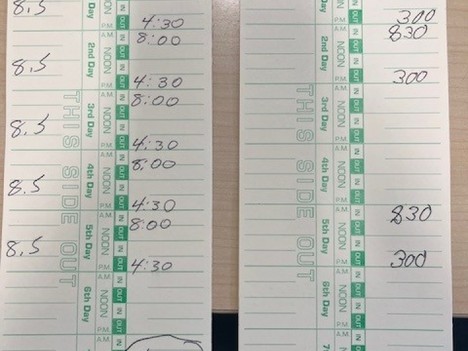 8.5 Day NOON IN
P.M. OUT 4:30
A.M. IN 8:00
2nd Day NOON OUT
8.5 IN
P.M. OUT 4:30
A.M. IN 8:00
3rd Day NOON OUT
8.5 IN
P.M. OUT 4:30
A.M. IN 8:00
4th Day NOON OUT
8.5 IN
P.M. OUT 4:30
A.M. IN 8:00
5th Day NOON OUT
8.5 IN
P.M. OUT 4:30
A.M. IN
6th Day NOON OUT
IN
P.M. OUT
A.M. IN
THIS SIDE OUT
Day NOON IN
P.M. OUT 300
A.M. IN 830
2nd Day NOON OUT
IN
P.M. OUT 300
A.M. IN
3rd Day NOON OUT
IN
P.M. OUT
A.M. IN
4th Day NOON OUT
IN
P.M. OUT
A.M. IN 830
5th Day NOON OUT
IN
P.M. OUT 300
A.M. IN
6th Day NOON OUT
IN
P.M. OUT
A.M. IN
THIS SIDE OUT